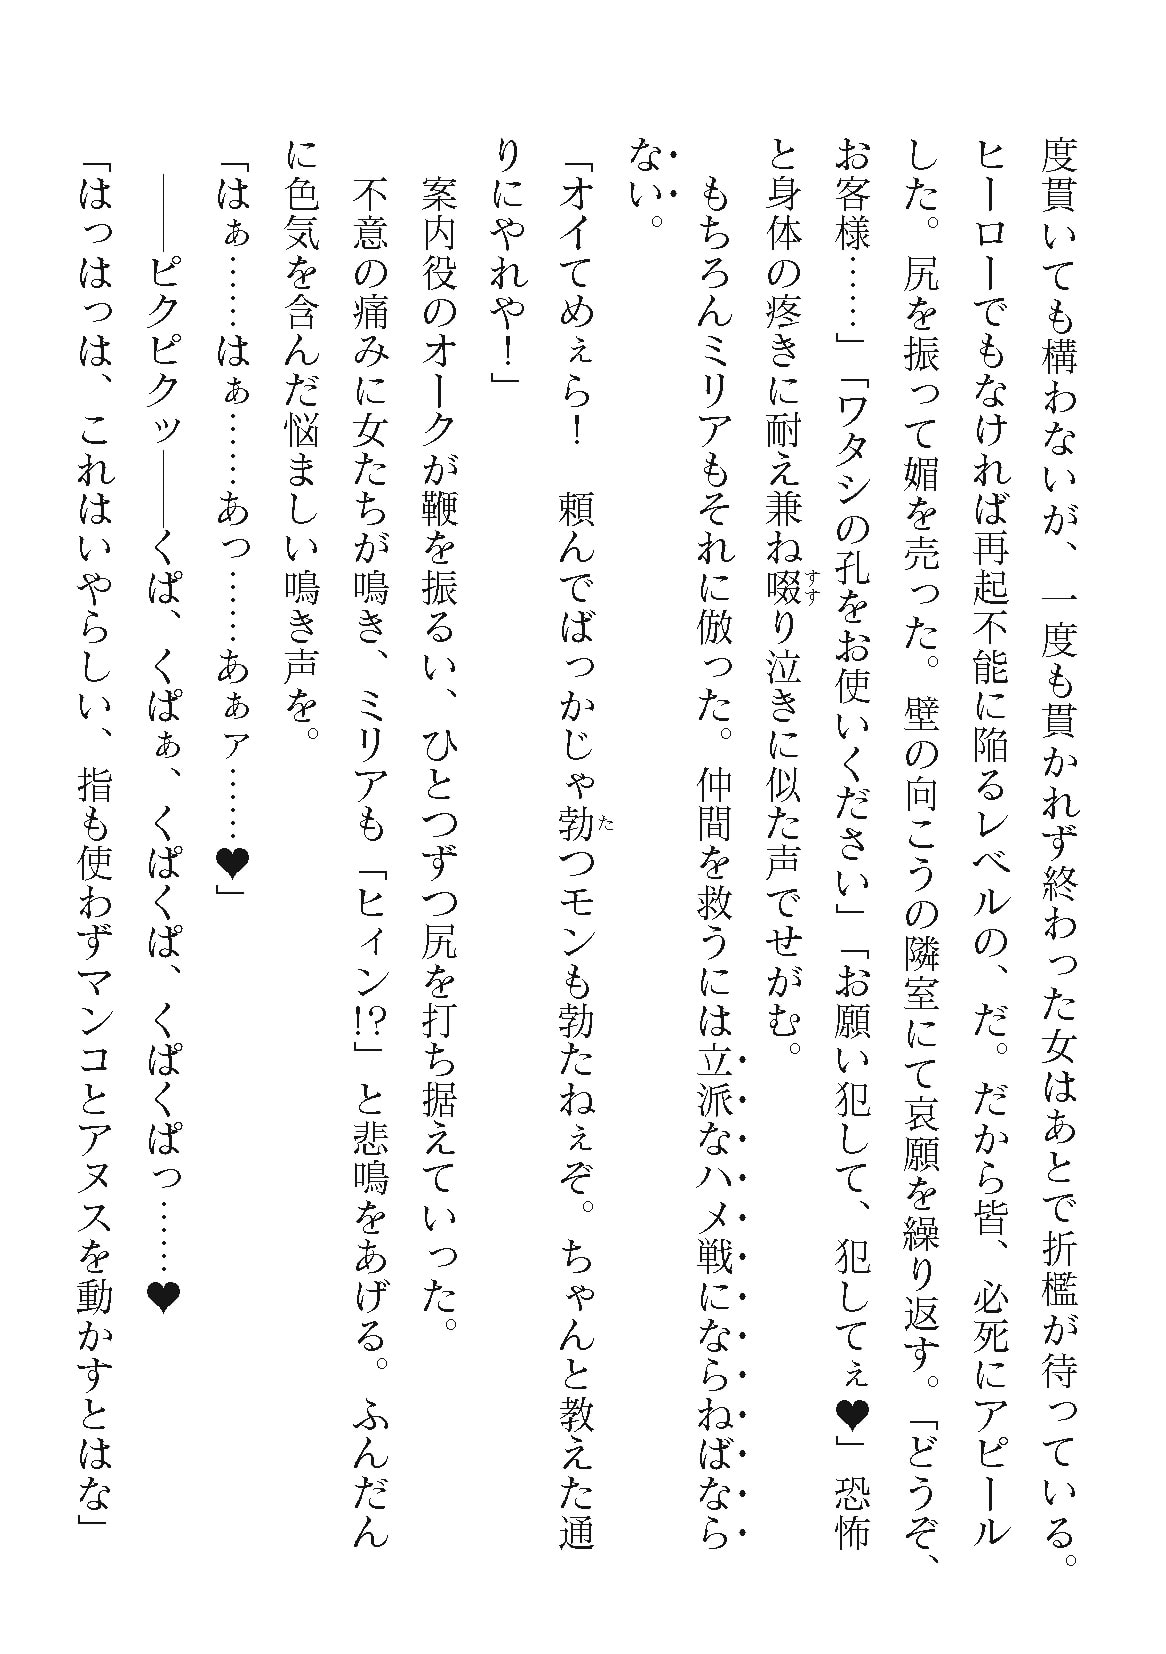 度貫いても構わないが、一度も貫かれず終わった女はあとで折檻が待っている。
ヒーローでもなければ再起不能に陥るレベルの、だ。だから皆、必死にアピール
した。尻を振って媚を売った。壁の向こうの隣室にて哀願を繰り返す。「どうぞ、
お客様……」「ワタシの孔をお使いください」「お願い犯して、犯してぇ♥」恐怖
と身体の疼きに耐え兼ね啜り泣きに似た声でせがむ。
もちろんミリアもそれに倣った。仲間を救うには立派なハメ戦にならねばなら
ない。
「オイてめぇら！　頼んでばっかじゃ勃つモンも勃たねぇぞ。ちゃんと教えた通
りにやれや！」
案内役のオークが鞭を振るい、ひとつずつ尻を打ち据えていった。
不意の痛みに女たちが鳴き、ミリアも「ヒィン!?」と悲鳴をあげる。ふんだん
に色気を含んだ悩ましい鳴き声を。
「はぁ……はぁ……あっ……あぁァ……♥」
――ピクピクッ――くぱ、くぱぁ、くぱくぱ、くぱくぱっ……♥
「はっはっは、これはいやらしい、指も使わずマンコとアヌスを動かすとはな」